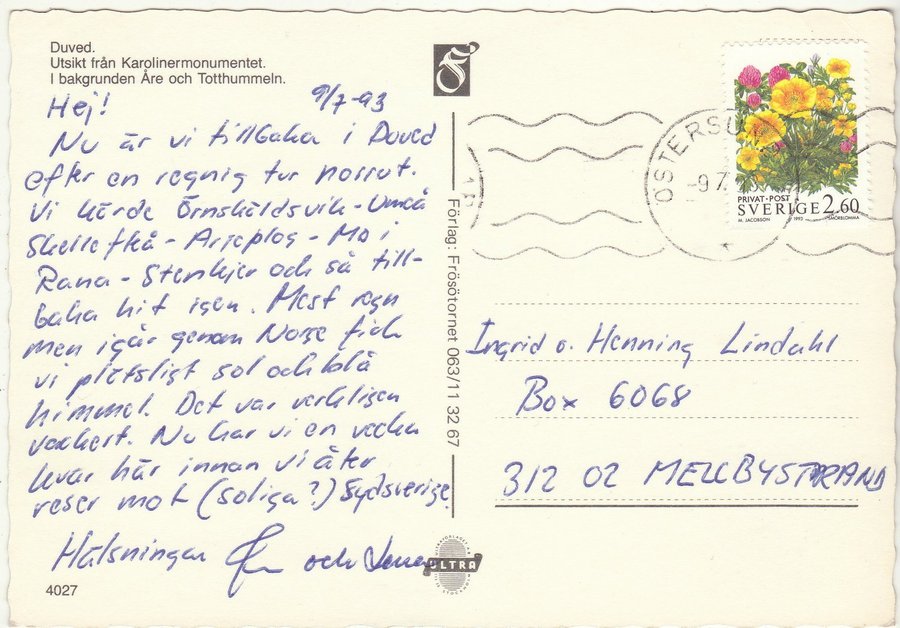 Duved.
Utsikt från Karolinermonumentet.
I bakgrunden Åre och Totthummeln.
Hej! 9/7-93
Nu är vi tillbaka i Duved
efter en regnig tur norrut.
Vi körde Örnsköldsvik-Umeå
Skellefteå-Arjeplog-Mo i
Rana-Stenkjer och så till-
baka hit igen. Mest regn
men igår genom Norge fick
vi plötsligt sol och blå
himmel. Det var verkligen
vackert. Nu har vi en vecka
kvar här innan vi åter
reser mot (soliga?) Sydsverige.
Hälsningar och
4027
Förlag: Frösötornet 063/11 32 67
ULTRA
ÖSTERSU
-9 7
PRIVAT·POST
SVERIGE 2.60
M. JACOBSON 1993 SMÖRBLOMMA
Ingrid o. Henning Lindahl
Box 6068
312 02 MELLBYSTRAND